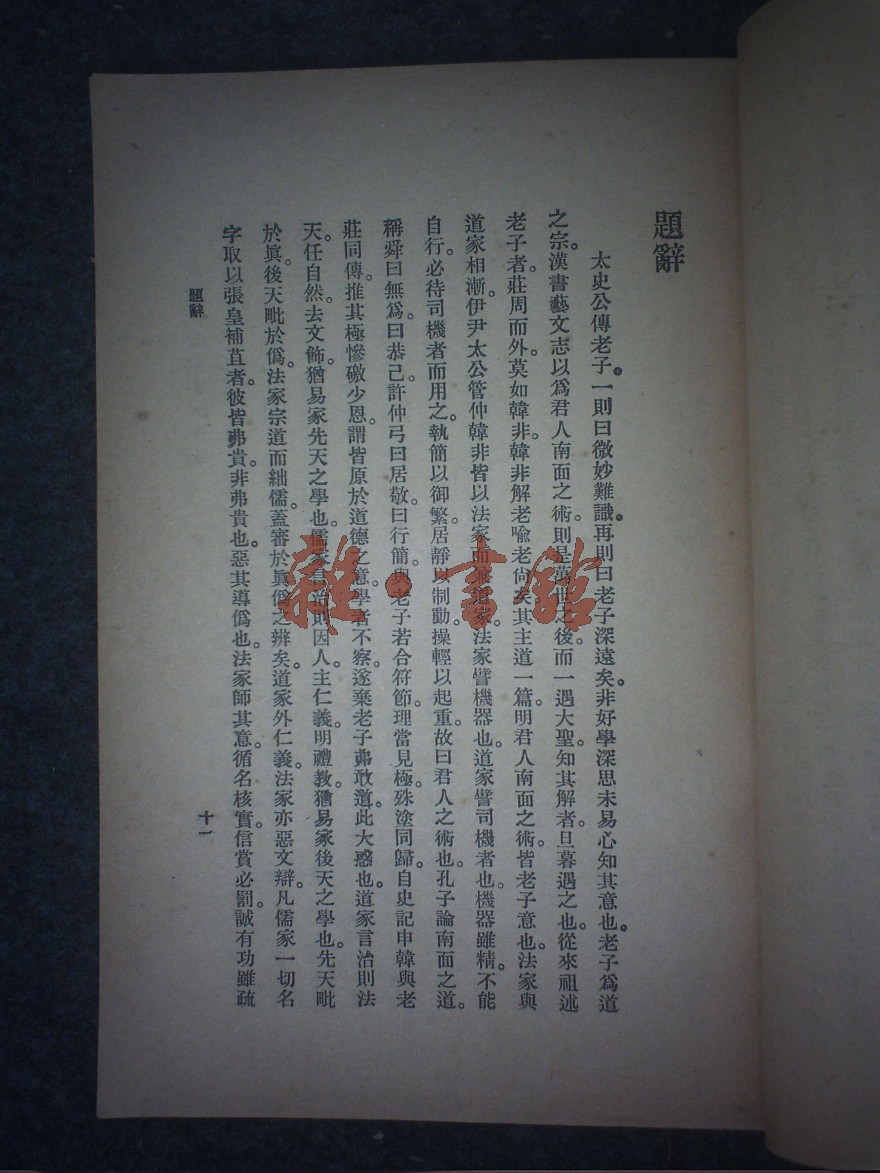 題辭
太史公傳老子。一則曰微妙難識。再則曰老子深遠矣。非好學深思未易心知其意也。老子爲道
之宗。漢書藝文志以爲君人南面之術。則是萬世之後。而一遇大聖。知其解者。旦暮遇之也。從來祖述
老子者。莊周而外。莫如韓非。韓非解老喻老尙矣。其主道一篇。明君人南面之術。皆老子意也。法家與
道家相漸。伊尹太公管仲韓非皆以法家而兼道家。法家譬機器也。道家譬司機者也。機器雖精。不能
自行。必待司機者而用之。執簡以御繁。居靜以制動。操輕以起重。故曰君人之術也。孔子論南面之道。
稱舜曰無爲。曰恭己。許仲弓曰居敬。曰行簡。與老子若合符節。理當見極。殊塗同歸。自史記申韓與老
莊同傳。推其極慘礉少恩。謂皆原於道德之意。學者不察。遂棄老子弗敢道。此大惑也。道家言治則法
天。任自然。去文飾。猶易家先天之學也。儒家言治則因人。主仁義。明禮教。猶易家後天之學也。先天毗
於眞。後天毗於僞。法家宗道而絀儒。蓋審於眞僞之辨矣。道家外仁義。法家亦惡文辯。凡儒家一切名
字取以張皇補苴者。彼皆弗貴。非弗貴也。惡其導僞也。法家師其意。循名核實。信賞必罰。誠有功雖疏
題辭
十一
雜·書館